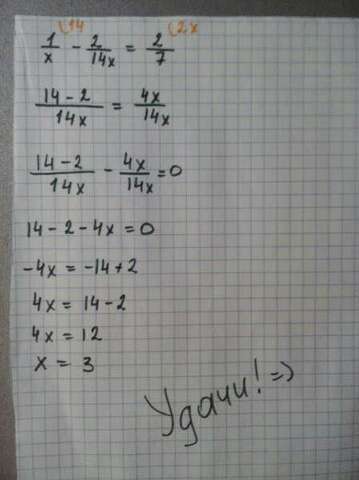 1/x (14 - 2/14x = 2/7 (2x
14-2/14x = 4x/14x
14-2/14x - 4x/14x = 0
14-2-4x=0
-4x = -14+2
4x = 14-2
4x = 12
x = 3
Удачи! =)